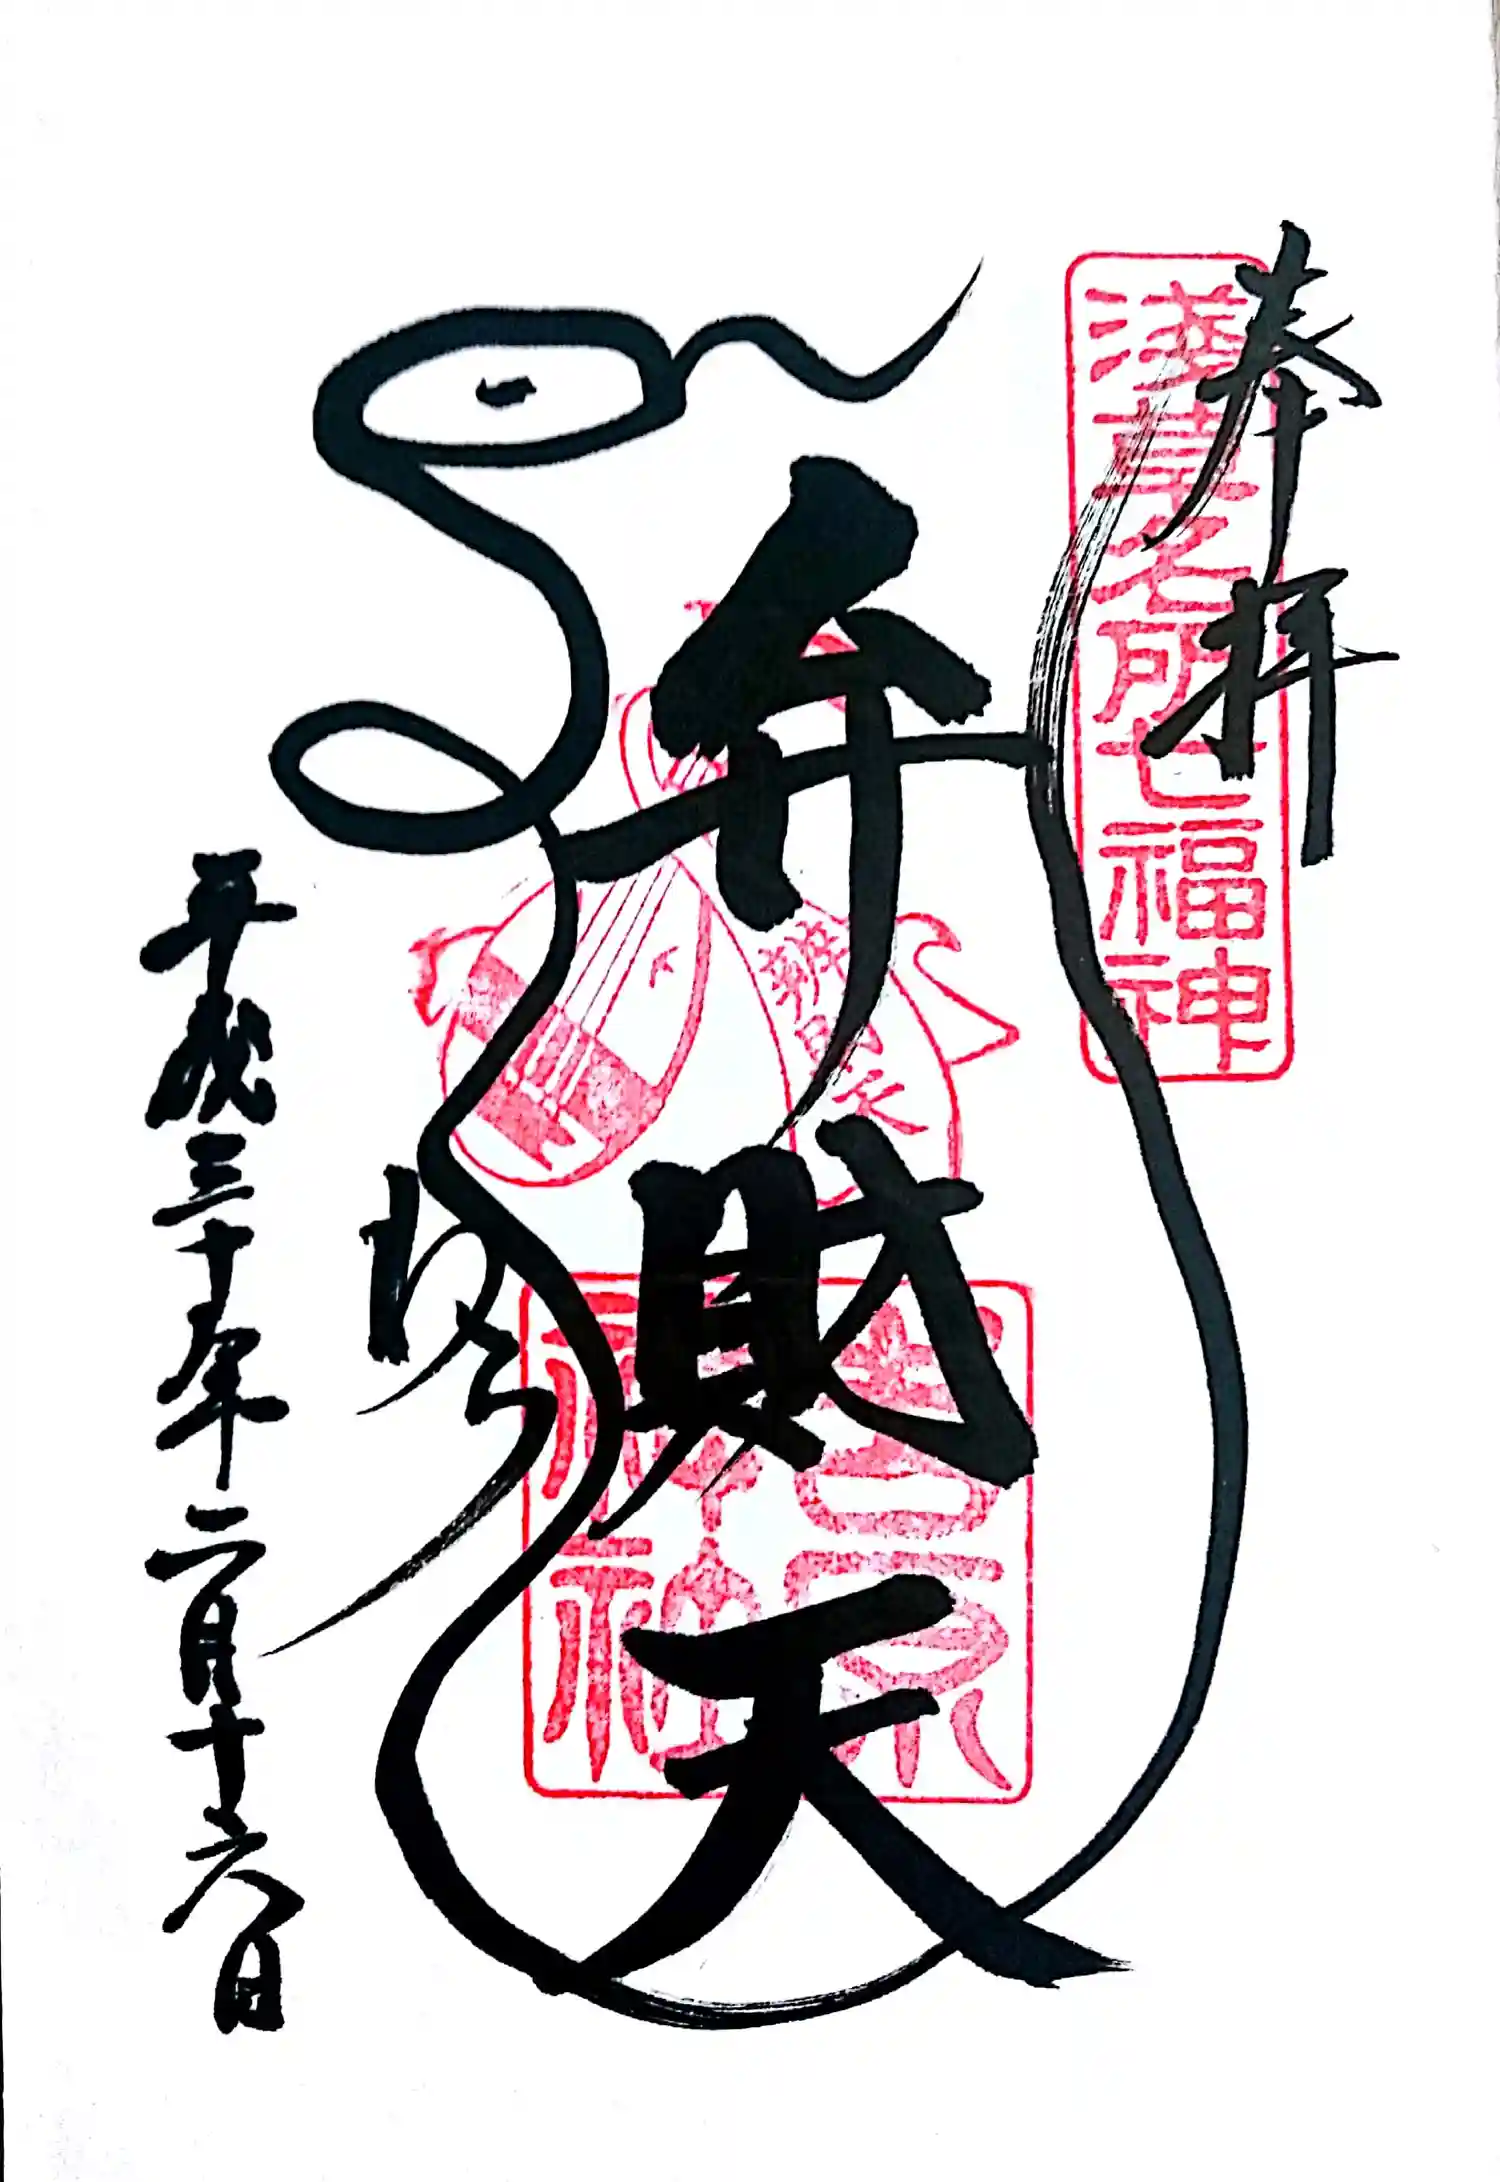 奉拝
浅草名所七福神
弁財天
辨財天
吉原神社
平成三十年二月十六日